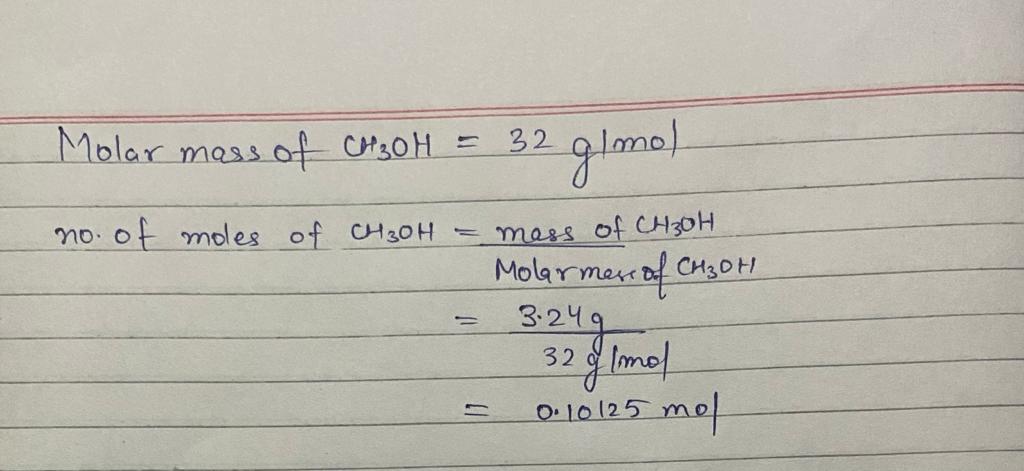 Molar mass of CH3OH = 32 g/mol
no. of moles of CH3OH = mass of CH3OH
Molar mass of CH3OH
= 3.24 g
32 g/mol
= 0.10125 mol